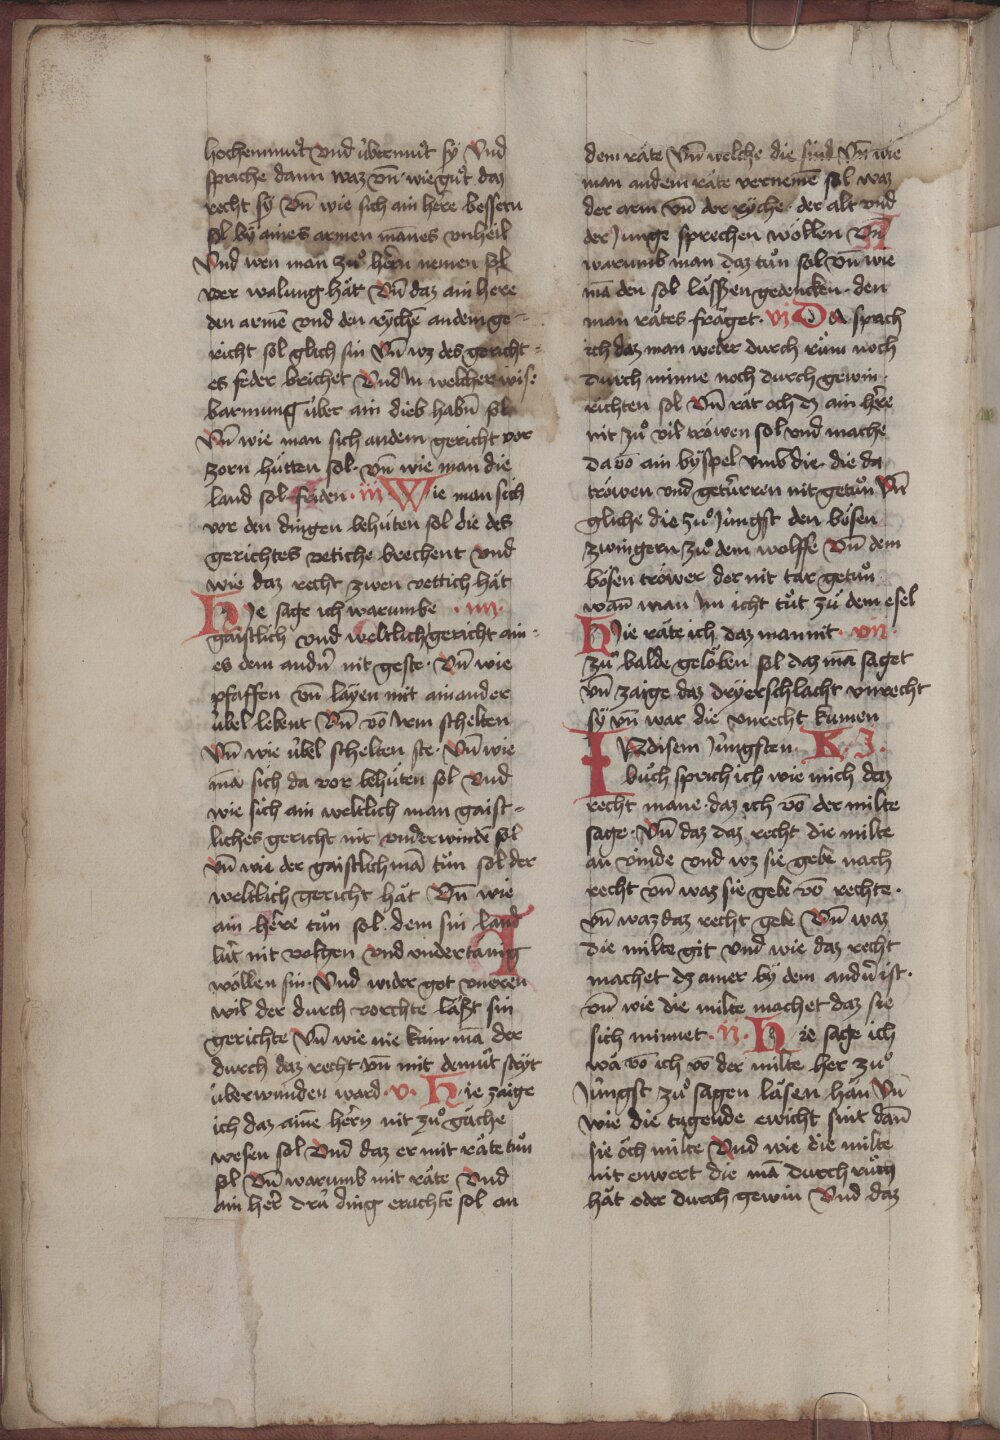 hochenmuͦt vnd v́bermuͦt sy Vnd
sprache dann waz vn̄ wie guͦt daz
recht sy Vn̄ wie sich ain here bessern
sol by aines armen mānes vnheil
Vnd wen man zuͦ hern nemen sol
ver walung hät Vn̄ daz ain here
den armē vnd den rychē an dem ge-
richt sol glich sin Vn̄ wz des gericht-
es feder brichet Vnd In welcher wise
barmung über ain dieb habn̄ sol
Vn̄ wie man sich an dem gericht vor
zorn hütten sol. vn̄ wie man die
land sol friden. iii Wie man sich
vor den dingen behüten sol die des
gerichtes vetiche brechent vnd
wie daz recht zwen vettich hät
Hie sage ich warumbe . iiii.
gaistlich vnd weltlich gericht ain-
es dem andn̄ nit geste. Vn̄ wie
pfaffen vn̄ layen mit ainander
übel lebent Vn̄ vō Irem schelten
Vn̄ wie übel schelten ste. Vn̄ wie
mā sich da vor behüten sol Vnd
wie sich ain weltlich man gaist-
liches gericht nit vnderwindē sol
vn̄ wie der gaistlich mā tuͦn sol der
weltlich gericht hät Vn̄ wie
ain here tuͦn sol. dem sin land
lüt nit volgen vnd vndertänig
wöllen sin. Vnd wider got vneren
wil der durch vorchte läst sin
gerichte Vn̄ wie nie kain mā der
durch daz recht vn̄ mit demuͦt stryt
überwunden ward .v. Hie zaige
ich daz aine hern nit zuͦ gäche
wesen sol Vnd daz er mit räte tuͦn
sol Vn̄ warumb mit räte Vnd
ain her drü ding erachte sol an
dem räte Vn̄ welche die sind Vn̄ wie
man an dem räte vernemē sol waz
der arm vn̄ der ryche. der alt vnd
der Junge sprechen wöllen Vn̄
warumb man daz tuͦn sol vn̄ wie
mā den sol lässen gedencken. den
man rätes fräget. vi Da sprach
ich daz man weder durch ruͦm noch
durch minne noch durch gewin
richten sol Vn̄ rät och dz ain here
nit zuͦ vil tröwen sol vnd mache
da vō ain byspel vmb die. die da
tröwen vnd getürren nit getuͦn Vn̄
gliche die zuͦ Jüngst den bösen
zwingern zuͦ dem wolffe Vn̄ dem
bösen tröwer der nit tar getuͦn
wan̄ man Im icht tuͦt zuͦ dem esel
Hie räte ich daz man nit . vii.
zuͦ balde gelöben sol daz mā saget
vn̄ zaige daz dryerschlacht vnrecht
sy vn̄ war die vnrecht kumen
IN disem Jüngsten K. I.
buͦch sprich ich wie mich daz
recht mane. daz ich vō der milte
sage. Vn̄ daz daz recht die milte
an vinde vnd wz sie gebe nach
recht vn̄ waz sie gebe vō rechte.
vn̄ waz daz recht gebe Vn̄ waz
die milte git vnd wie daz recht
machet dz ainer by dem andn̄ ist.
vn̄ wie die milte machet daz sie
sich minnet. ii. Hie sage ich
wa vō ich vō der milte her zuͦ
Jüngst zuͦ sagen läsen hän Vn̄
wie die tugende enwicht sint dan̄
sie öch milte Vnd wie die milte
nit enwert die mā durch ruͦm
hät oder durch gewin Vnd daz